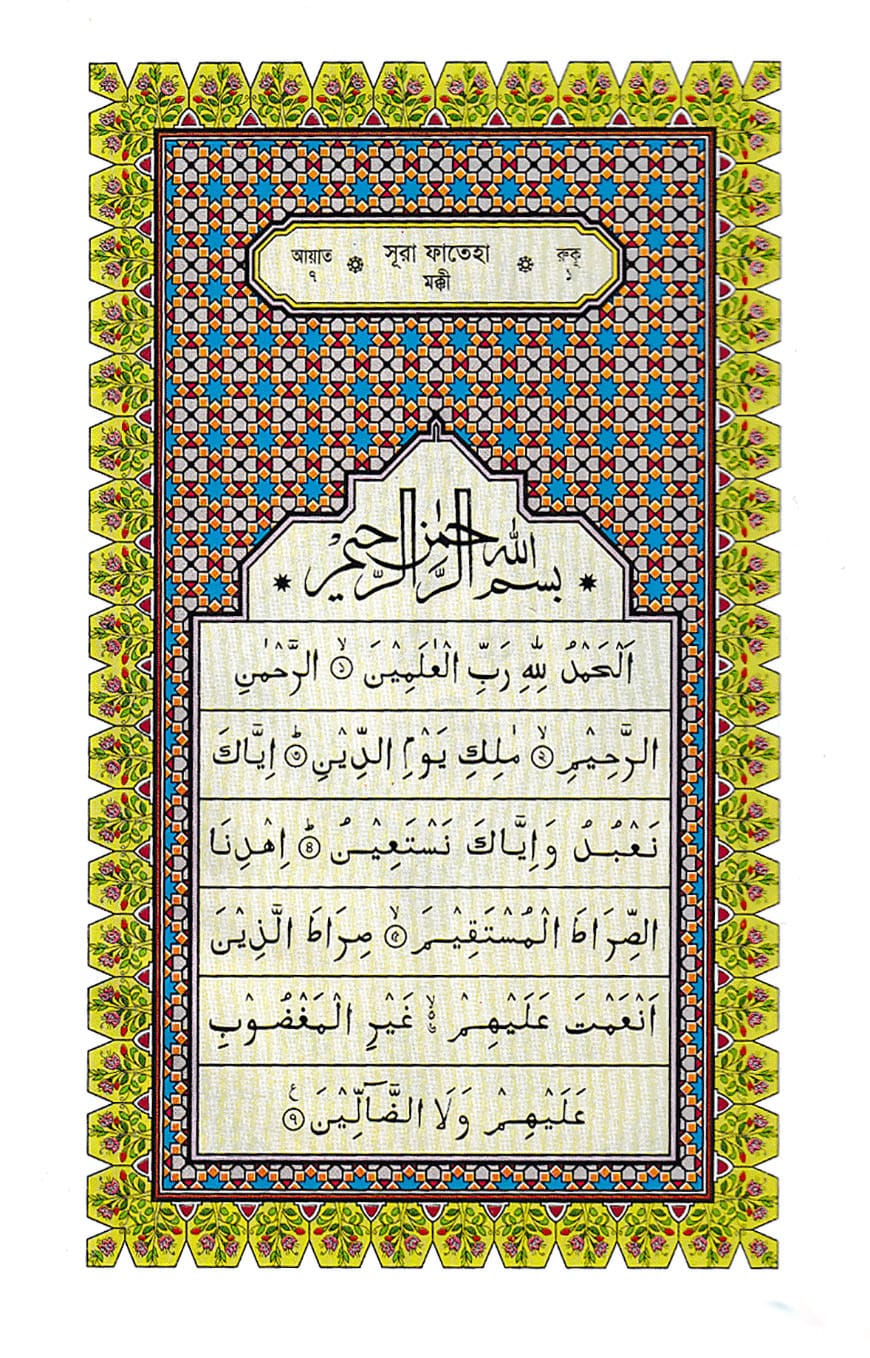 আয়াত ৭ সূরা ফাতেহা মক্কী রুকূ ১
بسم الله الرحمن الرحيم
اَلْحَمْدُ لِلّٰهِ رَبِّ الْعٰلَمِيْنَ ۙ﴿۱﴾ الرَّحْمٰنِ
الرَّحِيْمِ ۙ﴿۲﴾ مٰلِكِ يَوْمِ الدِّيْنِ ؕ﴿۳﴾ اِيَّاكَ
نَعْبُدُ وَاِيَّاكَ نَسْتَعِيْنُ ؕ﴿۴﴾ اِهْدِنَا
الصِّرَاطَ الْمُسْتَقِيْمَ ۙ﴿۵﴾ صِرَاطَ الَّذِيْنَ
اَنْعَمْتَ عَلَيْهِمْ ۙ۬ غَيْرِ الْمَغْضُوْبِ
عَلَيْهِمْ وَلَا الضَّآلِّيْنَ ﴿۹﴾ ع